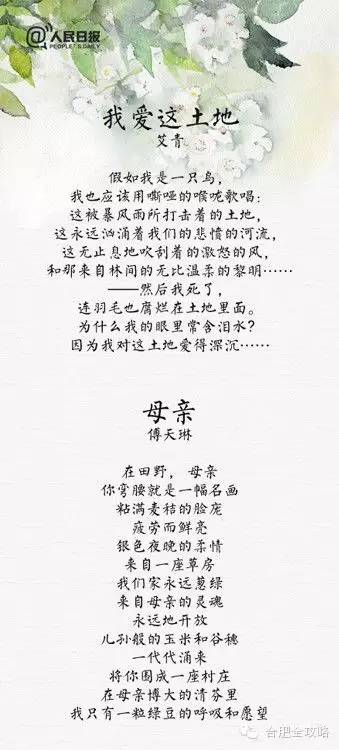 @人民日报
PEOPLE'S DAILY
我爱这土地
艾青
假如我是一只鸟，
我也应该用嘶哑的喉咙歌唱：
这被暴风雨所打击着的土地，
这永远汹涌着我们的悲愤的河流，
这无止息地吹刮着的激怒的风，
和那来自林间的无比温柔的黎明……
——然后我死了，
连羽毛也腐烂在土地里面。
为什么我的眼里常含泪水？
因为我对这土地爱得深沉……
母亲
傅天琳
在田野，母亲
你弯腰就是一幅名画
粘满麦秸的脸庞
疲劳而鲜亮
银色夜晚的柔情
来自一座草房
我们家永远葱绿
来自母亲的灵魂
永远地开放
儿孙般的玉米和谷穗
一代代涌来
将你围成一座村庄
在母亲博大的清芬里
我只有一粒绿豆的呼吸和愿望
合肥全攻略